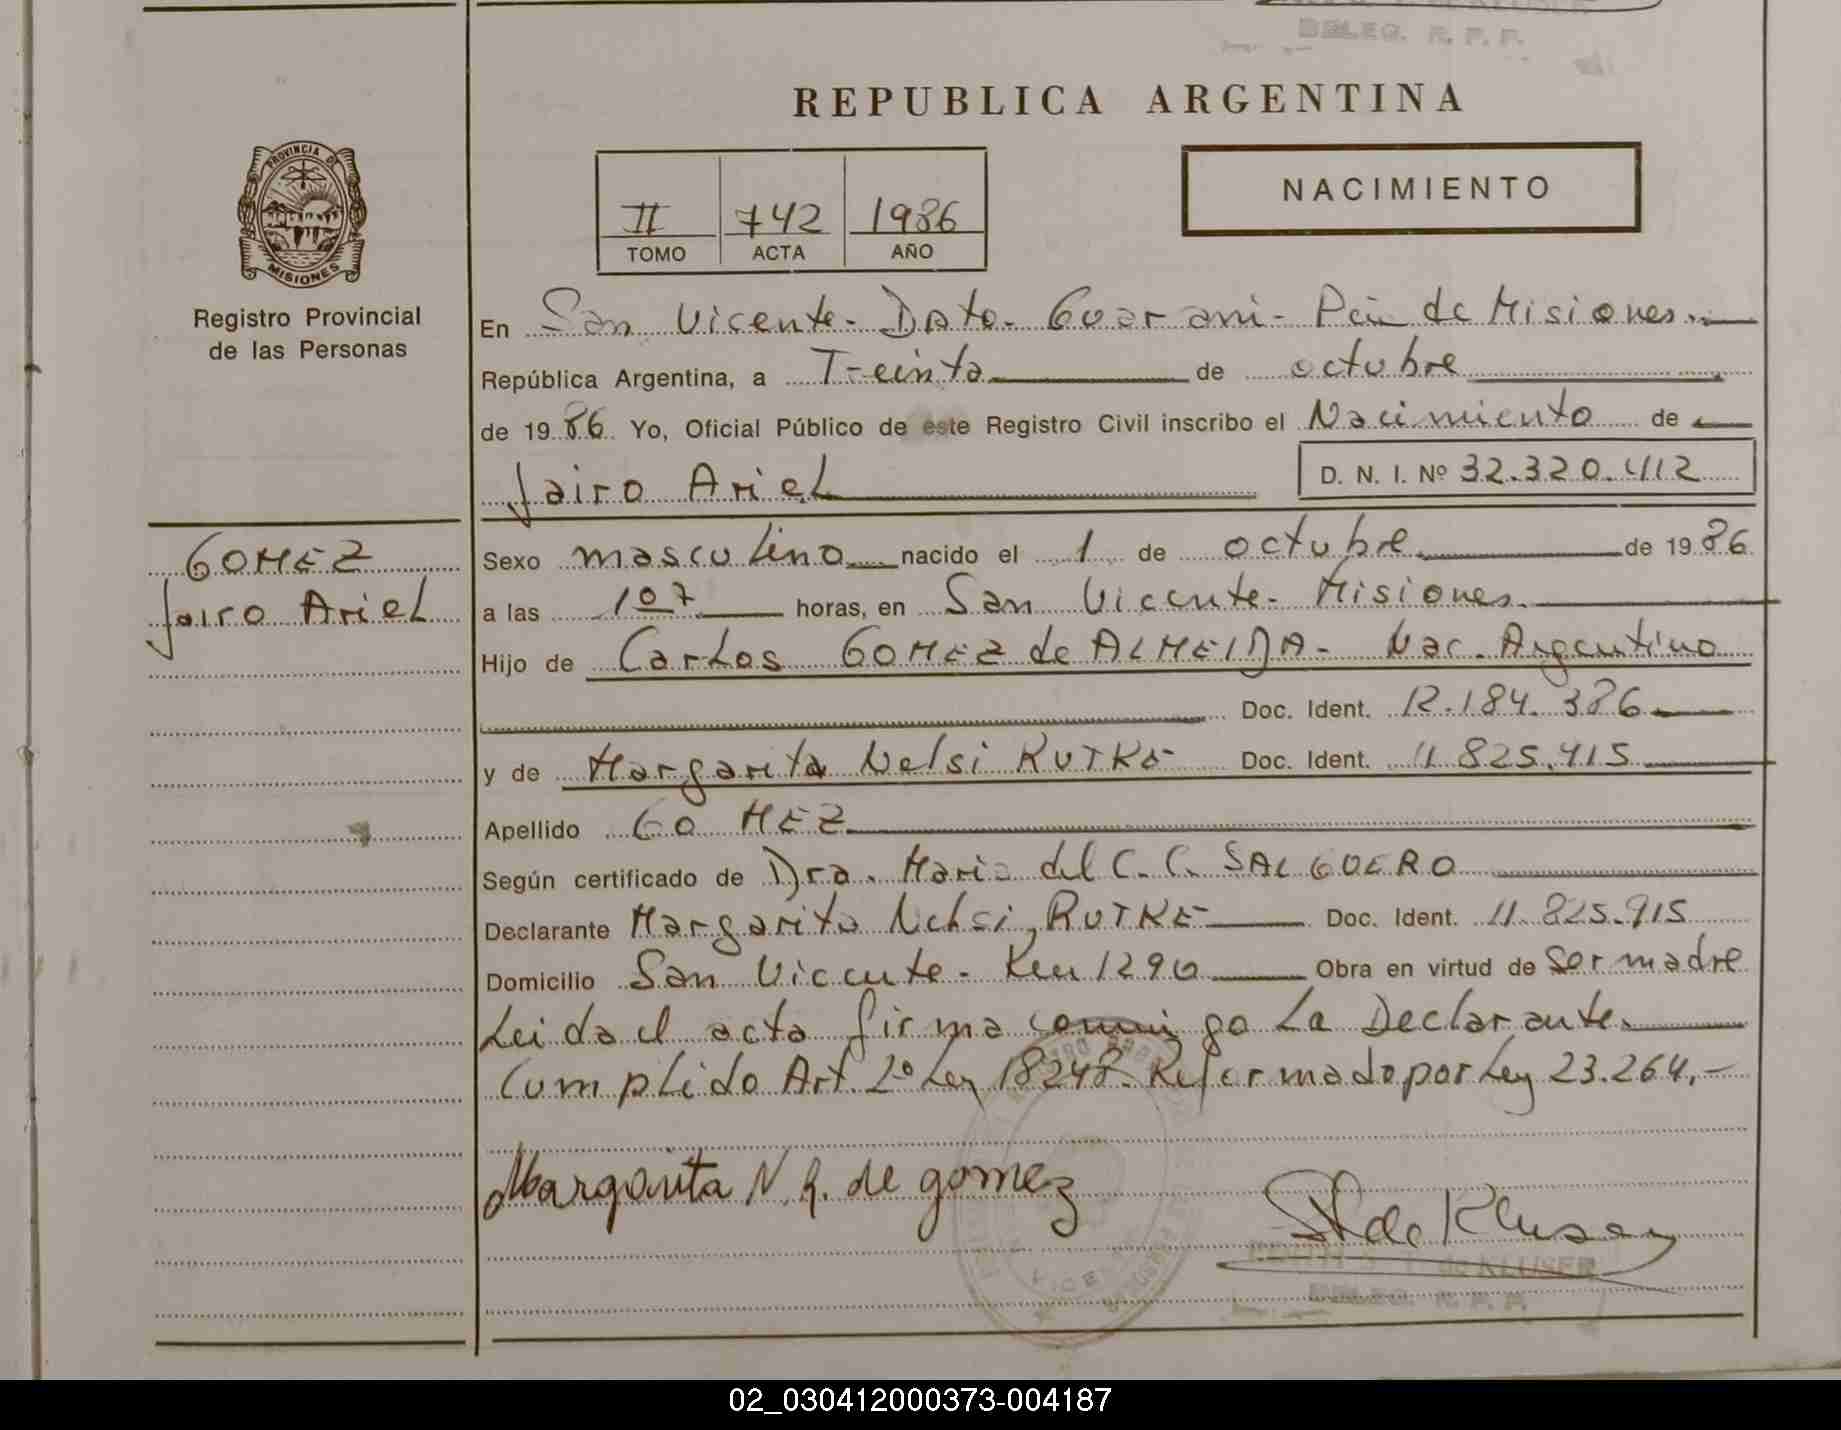 DELEG. R. P. P.
REPUBLICA ARGENTINA
PROVINCIA DE
MISIONES
Registro Provincial
de las Personas
II 742 1986
TOMO ACTA AÑO
NACIMIENTO
En San Vicente - Dpto. Guarani - Pcia de Misiones.
República Argentina, a Treinta de octubre
de 1986 Yo, Oficial Público de este Registro Civil inscribo el Nacimiento de
Jairo Ariel D. N. I. Nº 32.320.412
GOMEZ
Jairo Ariel
Sexo masculino nacido el 1 de octubre de 1986
a las 1 07 horas, en San Vicente - Misiones.
Hijo de Carlos GOMEZ de ALMEIDA - Nac. Argentino
Doc. Ident. 12.184.386
y de Margarita Nelsi RUTKE Doc. Ident. 11.825.915
Apellido GOMEZ
Según certificado de Dra. Maria del C. C. SALGUERO
Declarante Margarita Nelsi RUTKE Doc. Ident. 11.825.915
Domicilio San Vicente - Km 1290 Obra en virtud de Ser madre
Leida el acta firma conmigo La Declarante.
Cumplido Art. 2º Ley 18248. Reformado por Ley 23.264.-
Margarita N. R. de gomez
de Kluser
de KLUSER
DELEG. R. P. P.
02_030412000373-004187